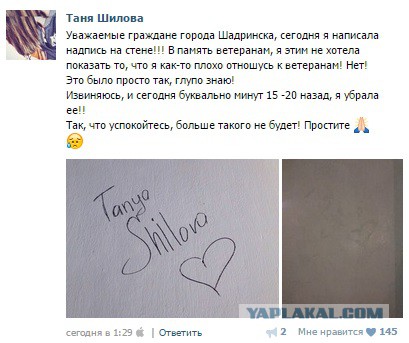 Таня Шилова
Уважаемые граждане города Шадринска, сегодня я написала
надпись на стене!!! В память ветеранам, я этим не хотела
показать то, что я как-то плохо отношусь к ветеранам! Нет!
Это было просто так, глупо знаю!
Извиняюсь, и сегодня буквально минут 15 -20 назад, я убрала
ее!!
Так, что успокойтесь, больше такого не будет! Простите 🙏
😥
Tanya
Shilova
YAPLAKAL.COM
сегодня в 1:29 | Ответить 2 Мне нравится 145